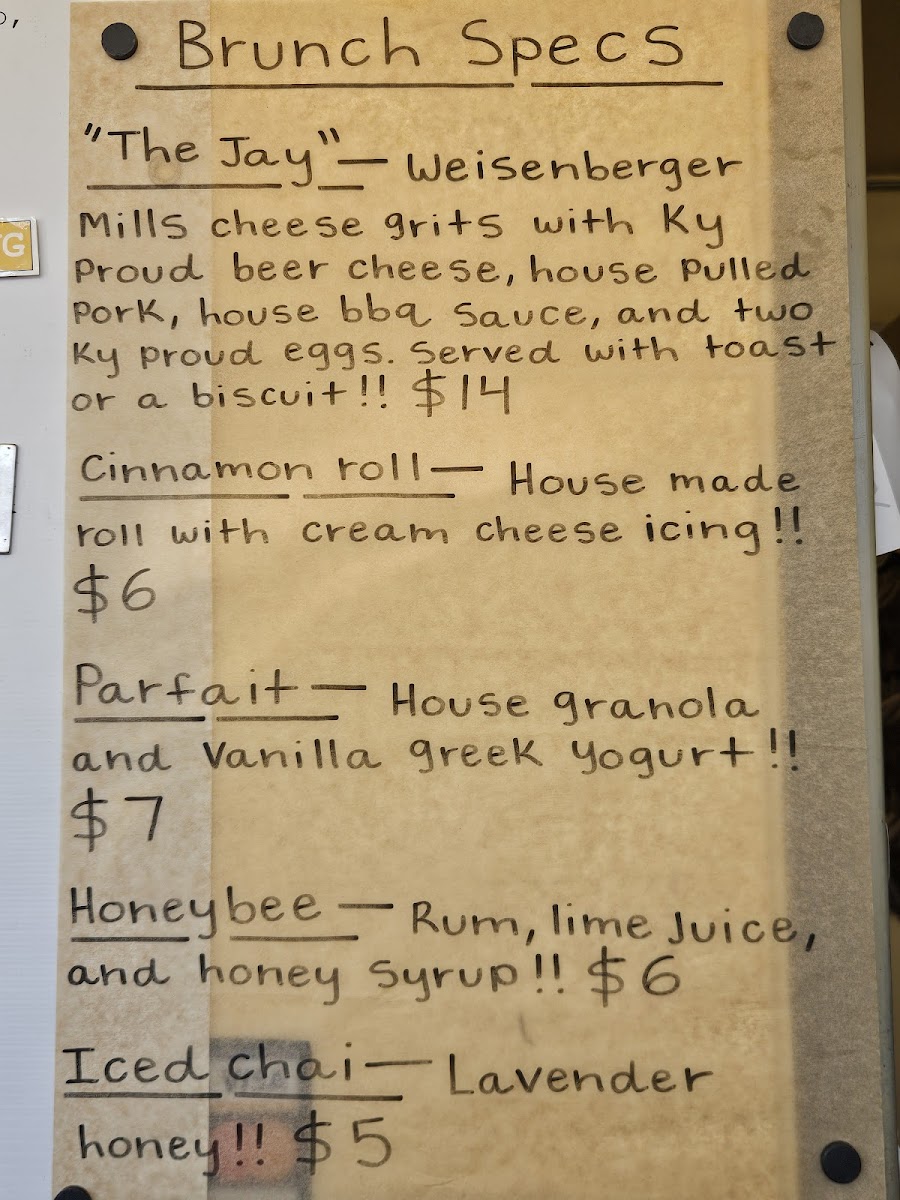 Brunch Specs
"The Jay" — Weisenberger
Mills cheese grits with Ky
Proud beer cheese, house pulled
pork, house bbq sauce, and two
Ky proud eggs. Served with toast
or a biscuit!! $14
Cinnamon roll — House made
roll with cream cheese icing!!
$6
Parfait — House granola
and Vanilla greek yogurt!!
$7
Honeybee — Rum, lime Juice,
and honey syrup!! $6
Iced chai — Lavender
honey!! $5
G